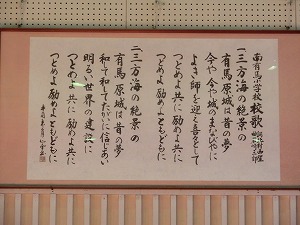 南有馬小学校 校歌
一、三方海の絶景の
有馬原城は昔の夢
今や今や城のまなびやに
よき師を迎え喜々として
つとめよ共に 励めよ共に
つとめよ 励めよ ともどもに
二、三方海の絶景の
有馬原城は昔の夢
和して和してたがいに信じあい
明るい世界の建設に
つとめよ 共に 励めよ 共に
つとめよ 励めよ ともどもに